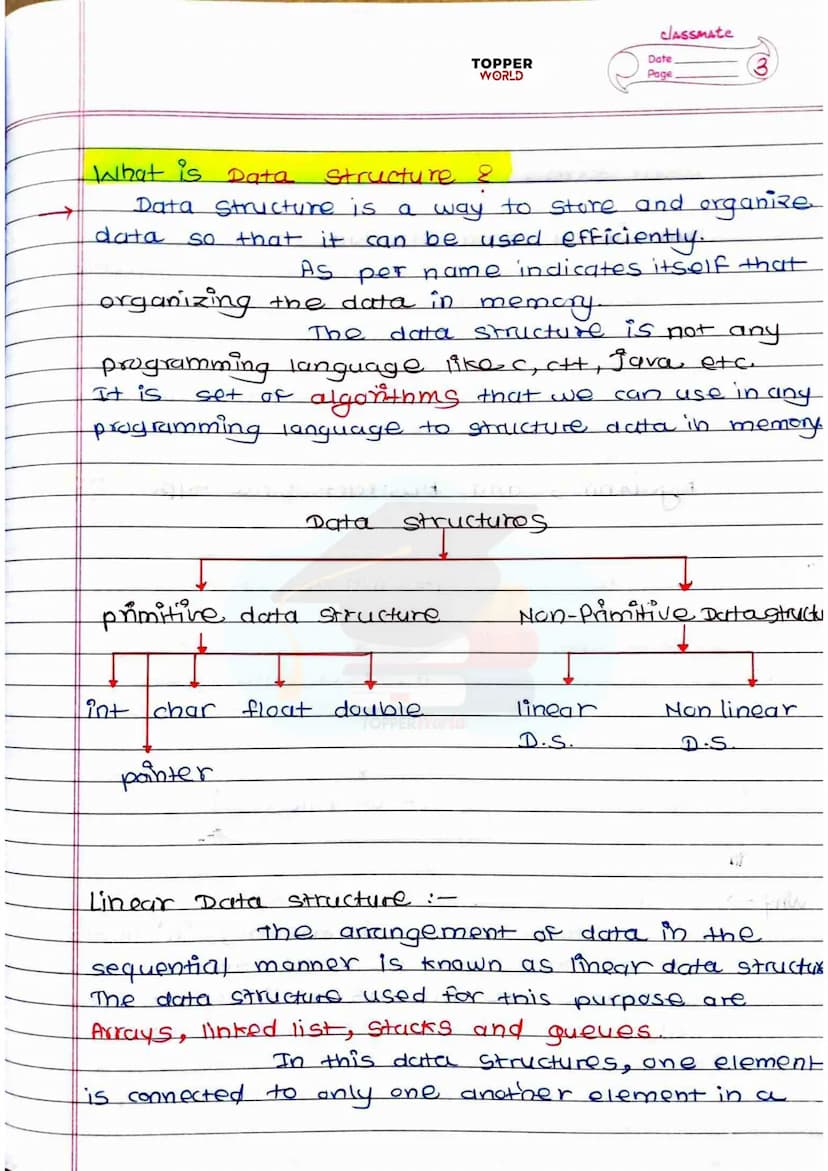 classmate
TOPPER
WORLD
Date
Page
3
What is Data Structure ?
Data structure is a way to store and organize
data so that it can be used efficiently.
As per name indicates itself that
organizing the data in memory.
The data structure is not any
programming language like c, c++, java etc.
It is set of algorithms that we can use in any
programming language to structure data in memory.
Data structures
primitive data structure Non-Primitive Datastructu
int char float double linear Non linear
D.S. D.S.
pointer
Linear Data structure :-
The arrangement of data in the
sequential manner is known as linear data structure
The data structure used for this purpose are
Arrays, linked list, stacks and queues.
In this data structures, one element
is connected to only one another element in a